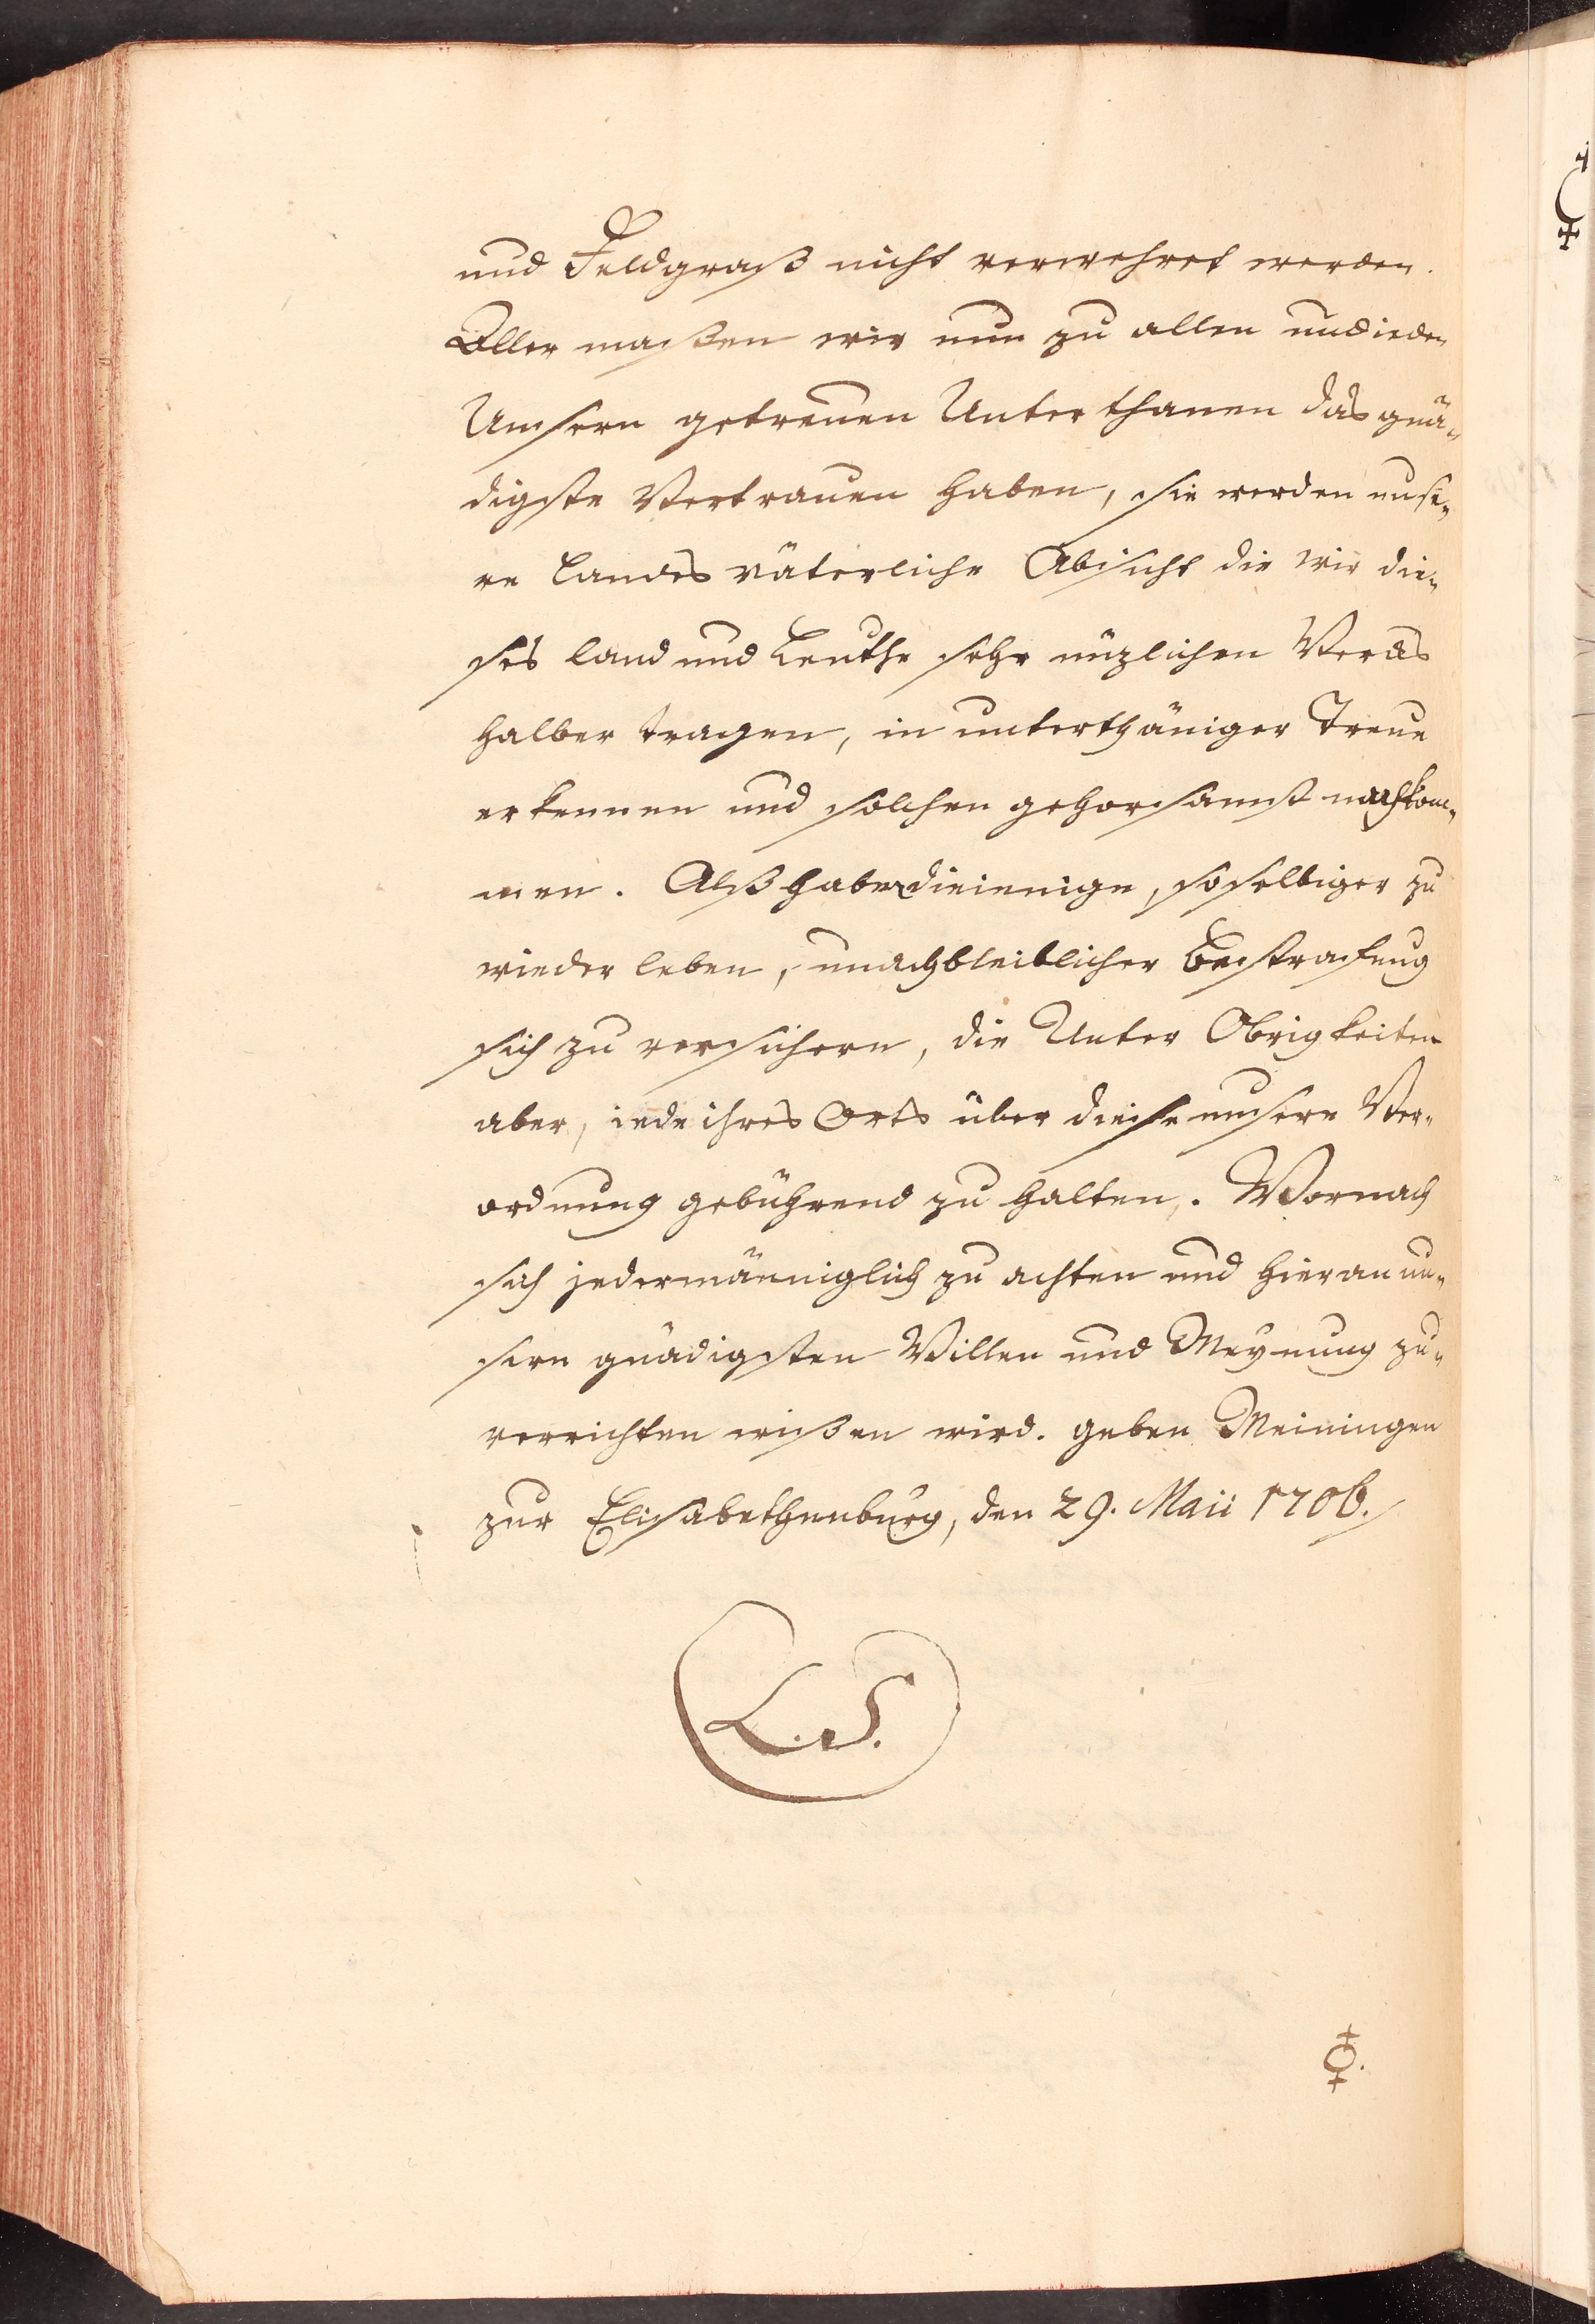 und Feldgraß nicht verwehret werden.
Aller maßen wir nun zu allen und ieden
Unsern getreuen Unterthanen das gnä-
digste Vertrauen haben, sie werden unse-
re Landes väterliche Absicht die wir die-
ses land und Leuthe sehr nüzlichen Wercks
halber tragen, in unterthäniger Treue
erkennen und solchen gehorsamst nachkom-
men. Alß haben dieienige, so selbiger zu
wieder leben, unachbleiblicher Bestrafung
sich zu versichern, die Unter Obrigkeiten
aber, iede ihres Orts über diese unsere Ver-
ordnung gebührend zu halten,. Wornach
sich jedermänniglich zu achten und hieran un-
sern gnädigsten Willen und Meynung zu-
verrichten wißen wird. geben Meiningen
zur Elisabethenburg, den 29. Maii 1706.
L.S.